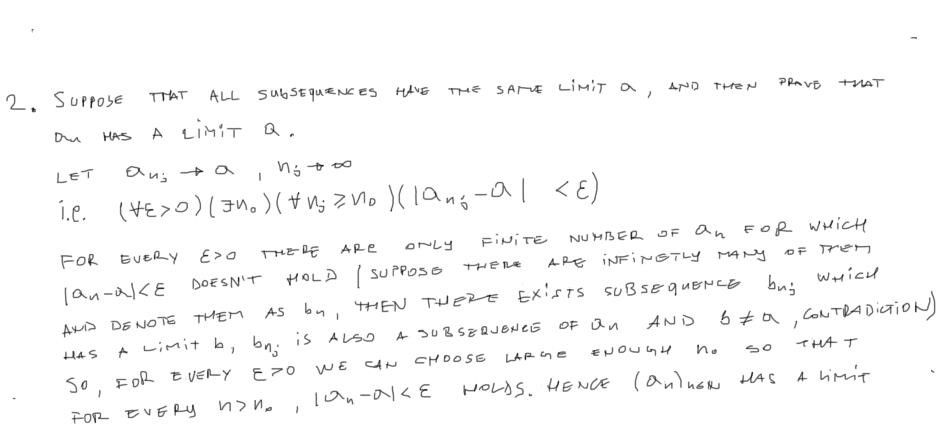 2. SUPPOSE THAT ALL SUBSEQUENCES HAVE THE SAME LIMIT a, AND THEN PROVE THAT
an HAS A LIMIT a.
LET a_{n_j} → a, n_j → ∞
i.e. (∀ε>0)(∃n₀)(∀n_j ≥ n₀)(|a_{n_j} - a| < ε)
FOR EVERY ε>0 THERE ARE ONLY FINITE NUMBER OF an FOR WHICH
|an-a|<ε DOESN'T HOLD (SUPPOSE THERE ARE INFINETLY MANY OF THEM
AND DENOTE THEM AS bn, THEN THERE EXISTS SUBSEQUENCE b_{n_j} WHICH
HAS A LIMIT b, b_{n_j} IS ALSO A SUBSEQUENCE OF an AND b ≠ a, CONTRADICTION)
SO, FOR EVERY ε>0 WE CAN CHOOSE LARGE ENOUGH n₀ SO THAT
FOR EVERY n>n₀, |an-a|<ε HOLDS. HENCE (an)n∈N HAS A LIMIT